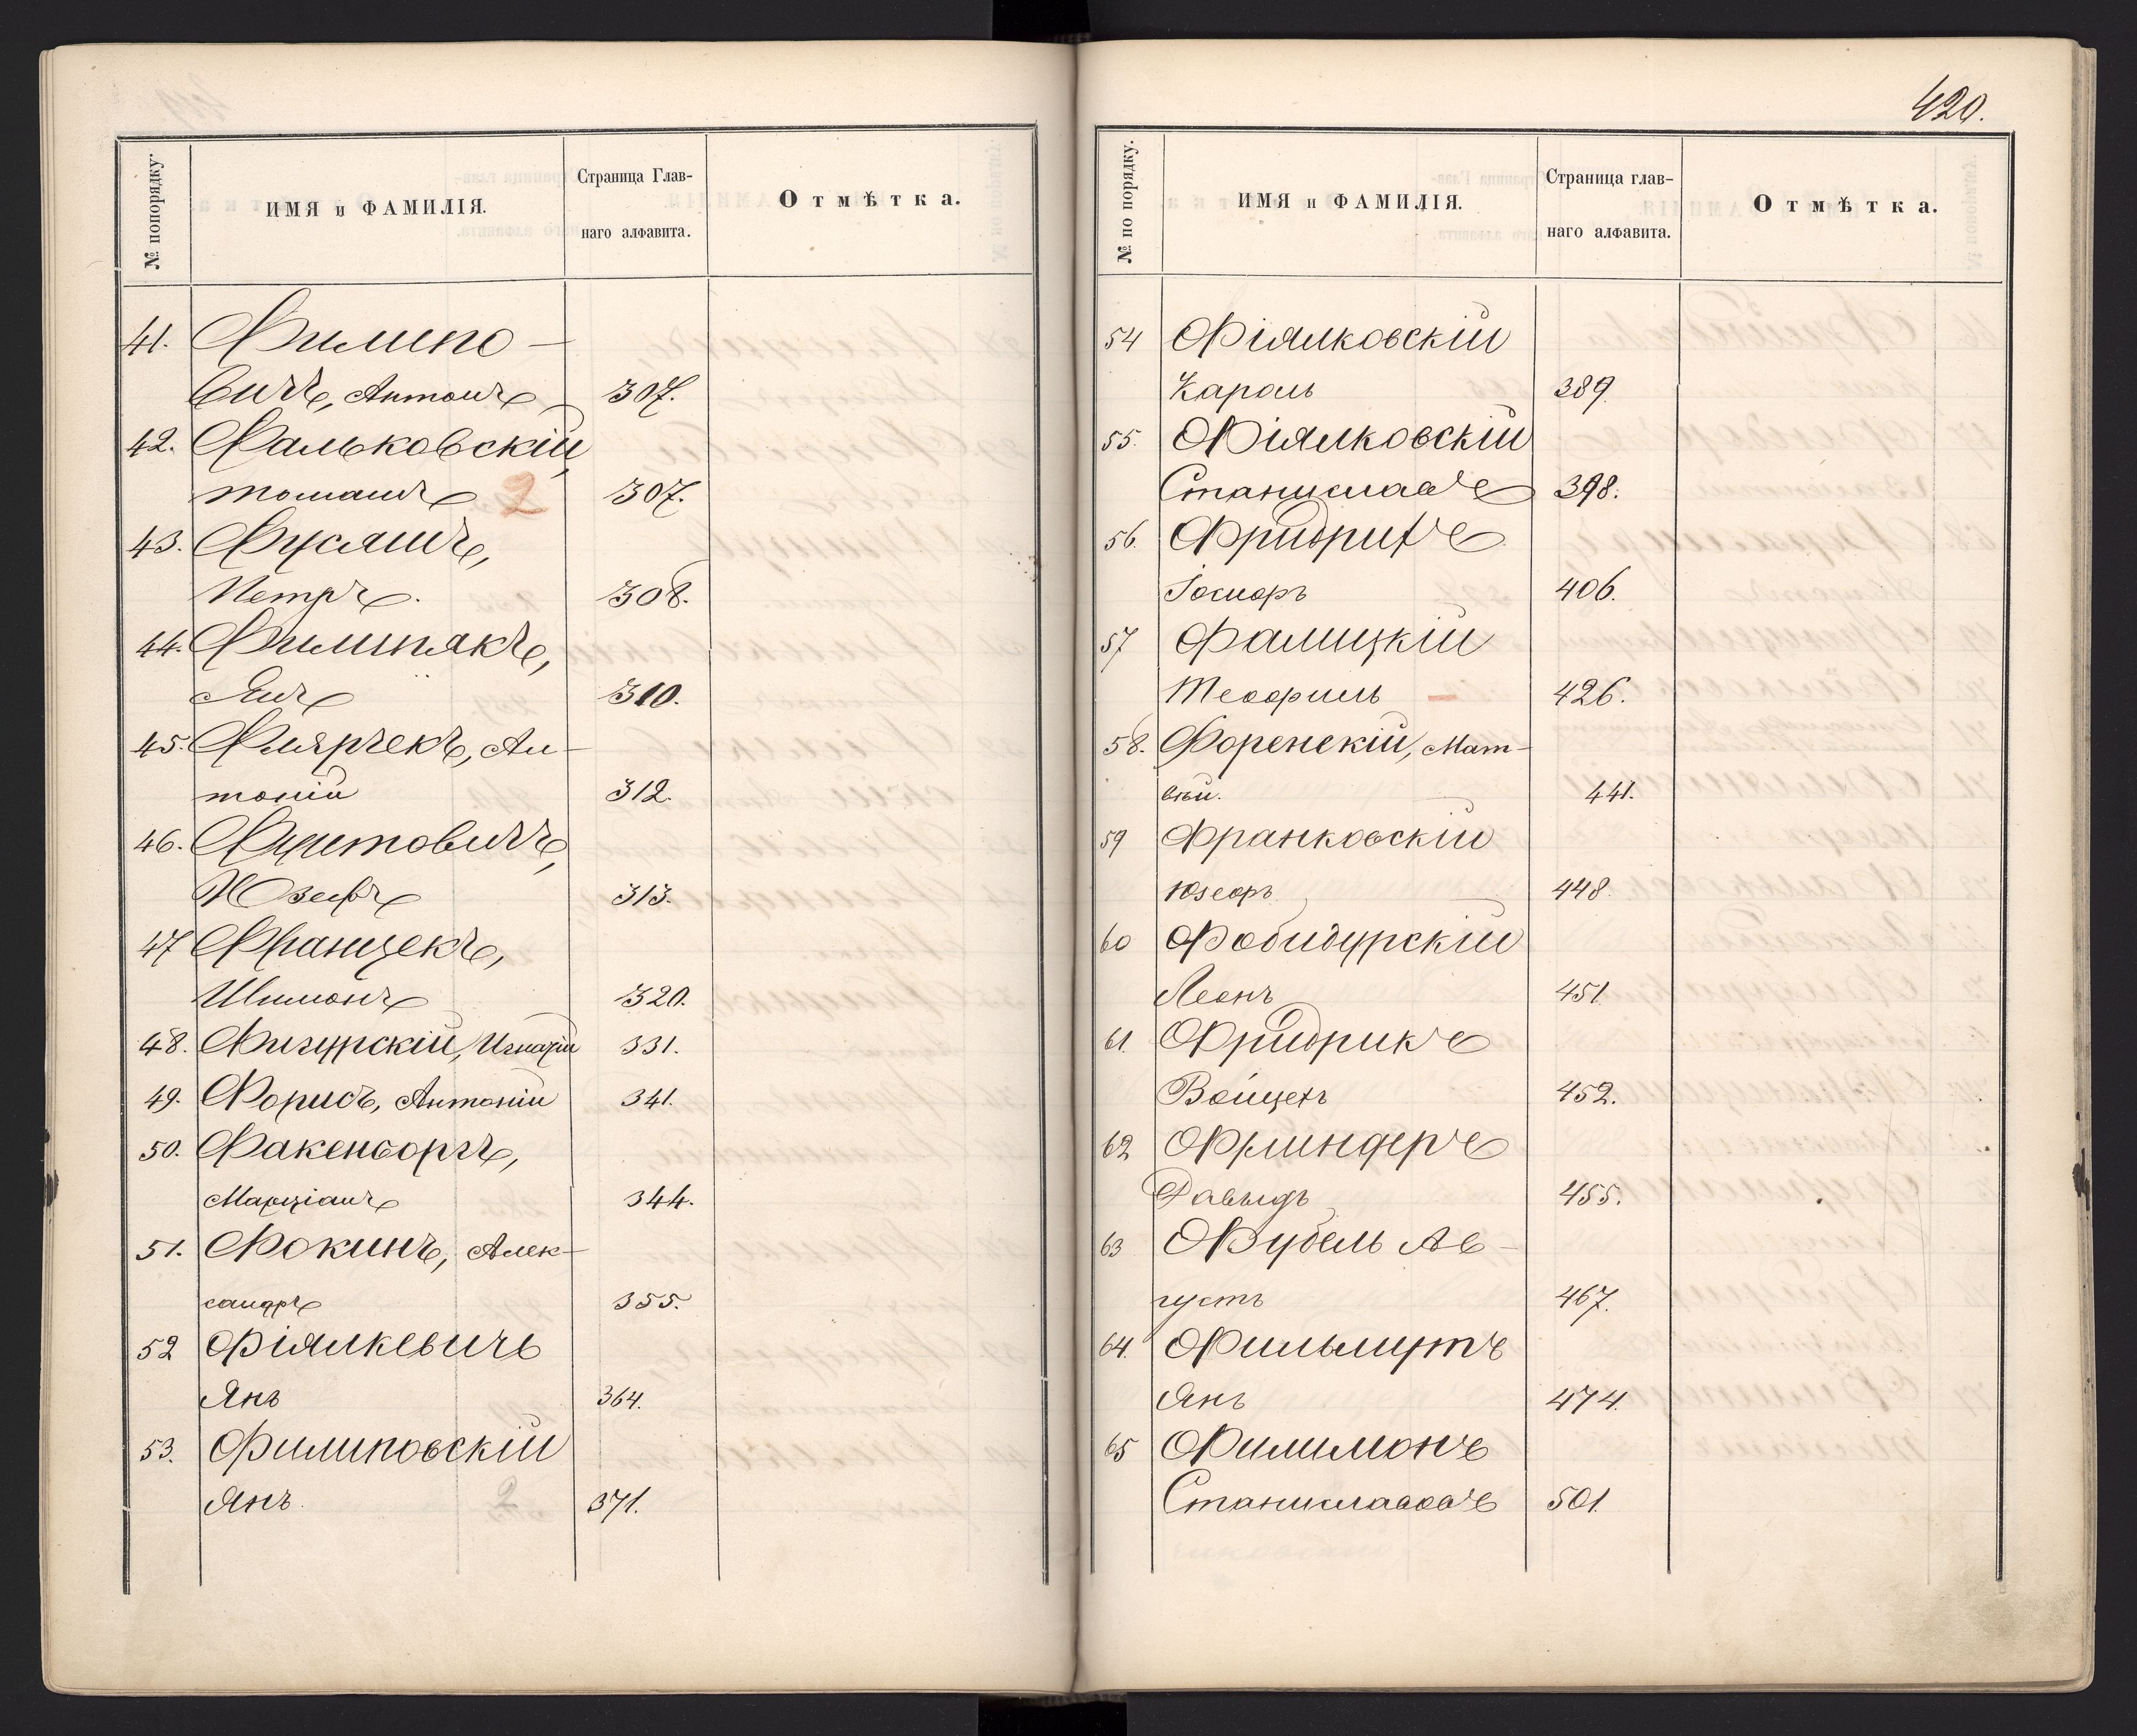 № попорядку.
ИМЯ и ФАМИЛІЯ.
Страница Глав-
наго алфавита.
Отмѣтка.
41. Филипо-
вичъ, Антонъ 307.
42. Фальковскій,
Томашъ 2 307.
43. Фусяшъ,
Петръ. 308.
44. Филипякъ,
Янъ 310.
45. Флярчекъ, Ан-
тоній 312.
46.
Юзефъ 313.
47 Францекъ,
Шимонъ 320.
48. Фигурскій, Игнацій 331.
49. Форисъ, Антоній 341.
50. Факенборгъ,
Марціанъ 344.
51. Фокинъ, Алек-
сандръ 355.
52 Фіялкевичъ
Янъ 364.
53. Филиповскій
Янъ. 2 371.
420.
№ по порядку.
ИМЯ и ФАМИЛІЯ.
Страница глав-
наго алфавита.
Отмѣтка.
54 Фіялковскій
Кароль 389.
55. Фіялковскій
Станиславъ 398.
56. Фридрихъ
Іосифъ 406.
57 Фалицкій
Теофиль 426.
58. Форенскій, Мат-
вѣй. 441.
59 Франковскій
Юзефъ 448.
60 Фобидурскій
Леонъ 451
61. Фридрикъ
Войцехъ 452.
62 Флиндеръ
Давыдъ 455.
63 Фубель Ав-
густъ 467.
64. Фильмутъ
Янъ 474.
65 Филимонъ
Станиславовъ 501.